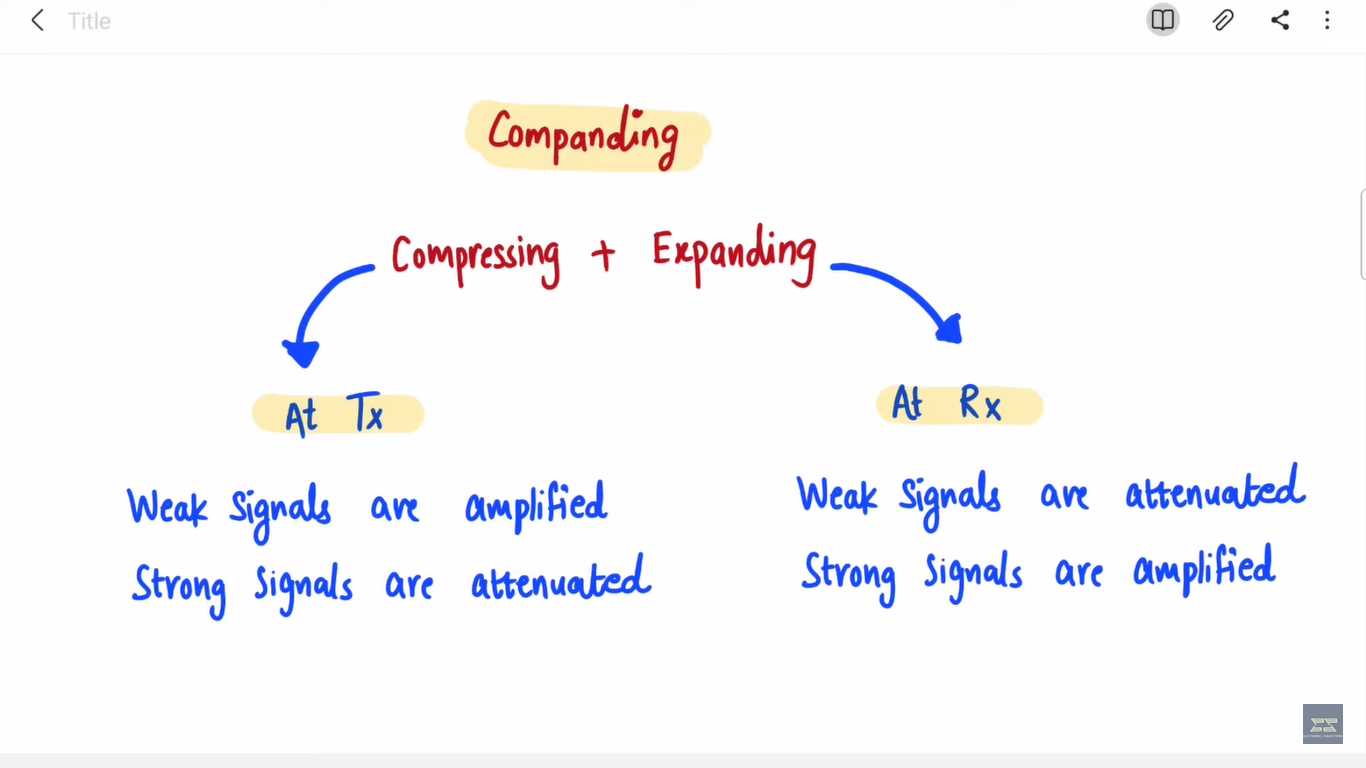 Title
Companding
Compressing + Expanding
At Tx
At Rx
Weak signals are amplified
Strong signals are attenuated
Weak signals are attenuated
Strong signals are amplified